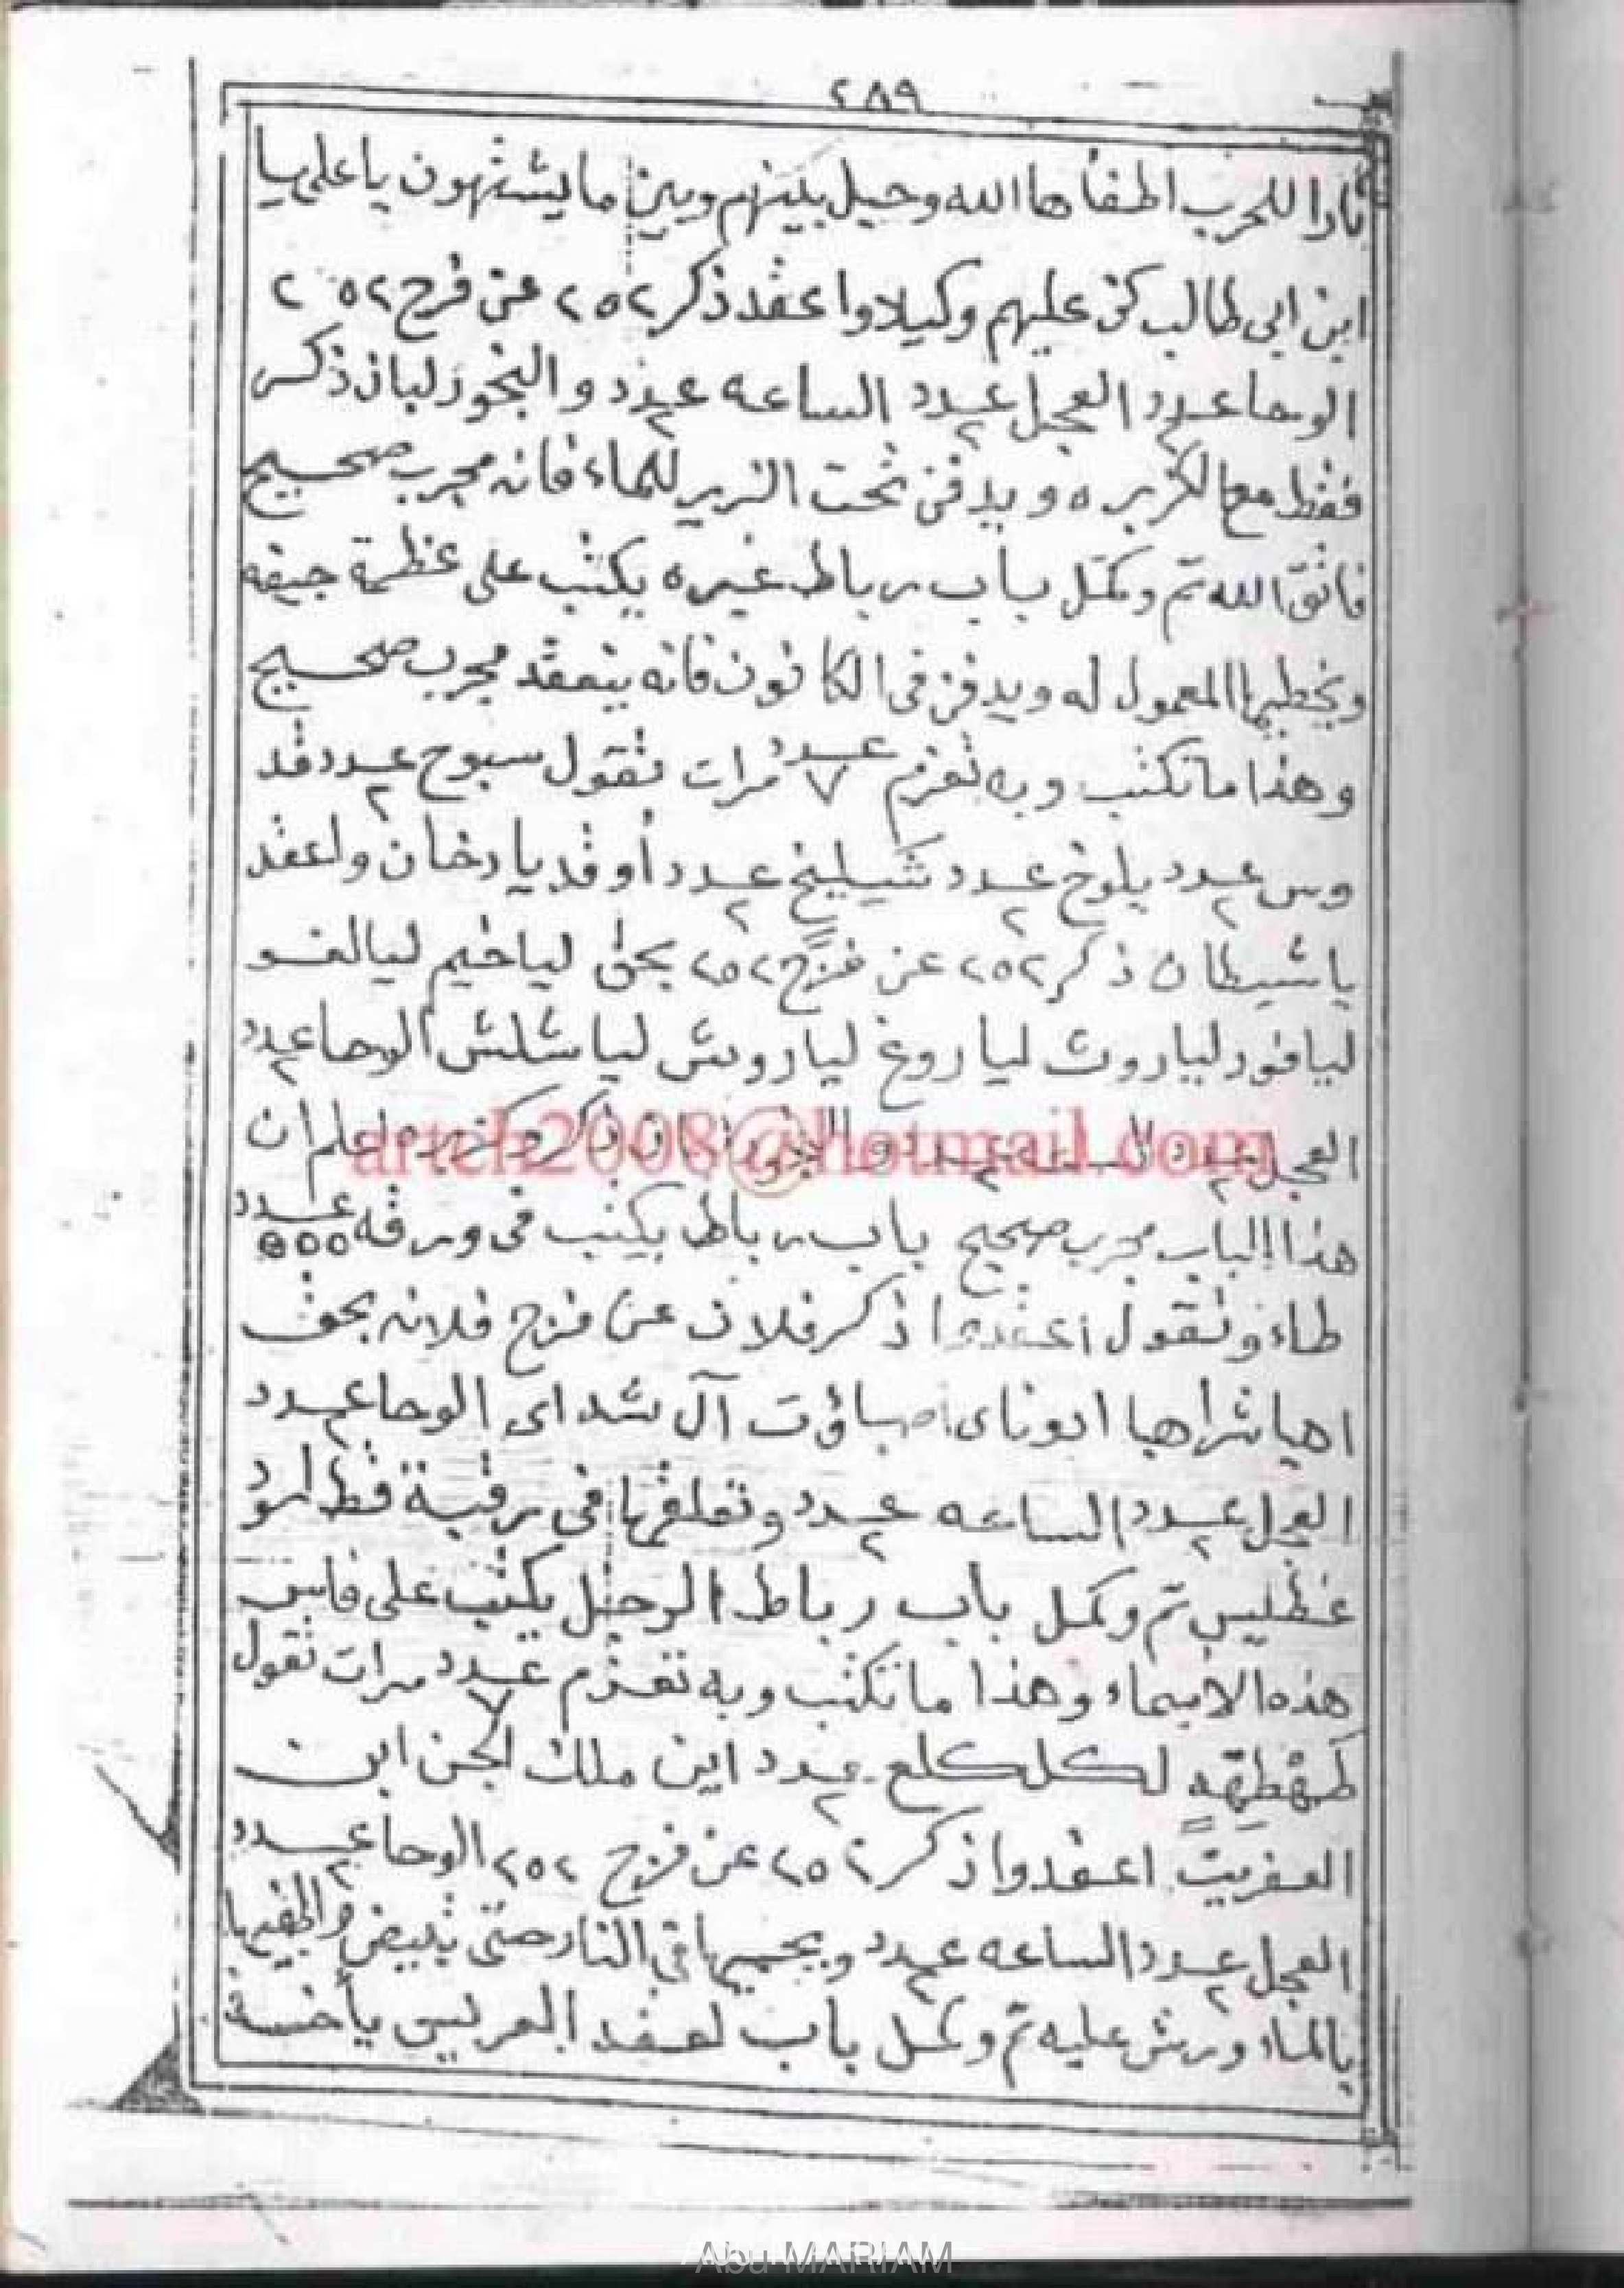 ٢٨٩
نارا للحرب اطفأها الله وحيل بينهم وبين ما يشتهون يا على يا
ابن ابى طالب كن عليهم وكيلا واعقد ذكر ٢٥٢ عن فرج ٢٥٢
الوحا عدد ٢ العجل عدد ٢ الساعه عدد ٢ والبخور لبان ذكر
فقط مع الكزبره ويدفن تحت الزير للماء فانه مجرب صحيح
فاتق الله تم وكمل باب رباط غيره يكتب على عظمة جيفه
ويخطيها المعمول له ويدفن فى الكانون فانه ينعقد مجرب صحيح
وهذا ما تكتب وبه تعزم عدد ٧ مرات تقول سبوح عدد ٢ قد
وس عدد ٢ يلوخ عدد ٢ شيليخ عدد ٢ أوقد يا دخان واعقد
يا شيطان ذكر ٢٥٢ عن فرج ٢٥٢ بحق لياخيم ليالغو
ليافور لياروث لياروغ لياروش لياشلش الوحا عدد ٢
العجل عدد ٢ الساعه عدد ٢ والبخور لبان ذكر وكزبره واعلم ان
هذا الباب مجرب صحيح باب رباط يكتب فى ورقه عدد ٥٥٥
طاء وتقول اعقدوا ذكر فلان عن فرج فلانه بحق
اهيا شراهيا ادوناى اصباؤت آل شداى الوحا عدد ٢
العجل عدد ٢ الساعه عدد ٢ وتعلقها فى رقبة قط اسود
غطيس تم وكمل باب رباط الرجل يكتب على فاس
هذه الاسماء وهذا ما تكتب وبه تعزم عدد ٧ مرات تقول
طهقطهه لكلكلع عدد ٢ اين ملك الجن ابن
العفريت اعقدوا ذكر ٢٥٢ عن فرج ٢٥٢ الوحا عدد ٢
العجل عدد ٢ الساعه عدد ٢ ويحميها فى النار حتى تبيض واطفيها
بالماء ورش عليه تم وكمل باب لعقد العريس يأخذ
artch2008@hotmail.com
Abu MARIAM